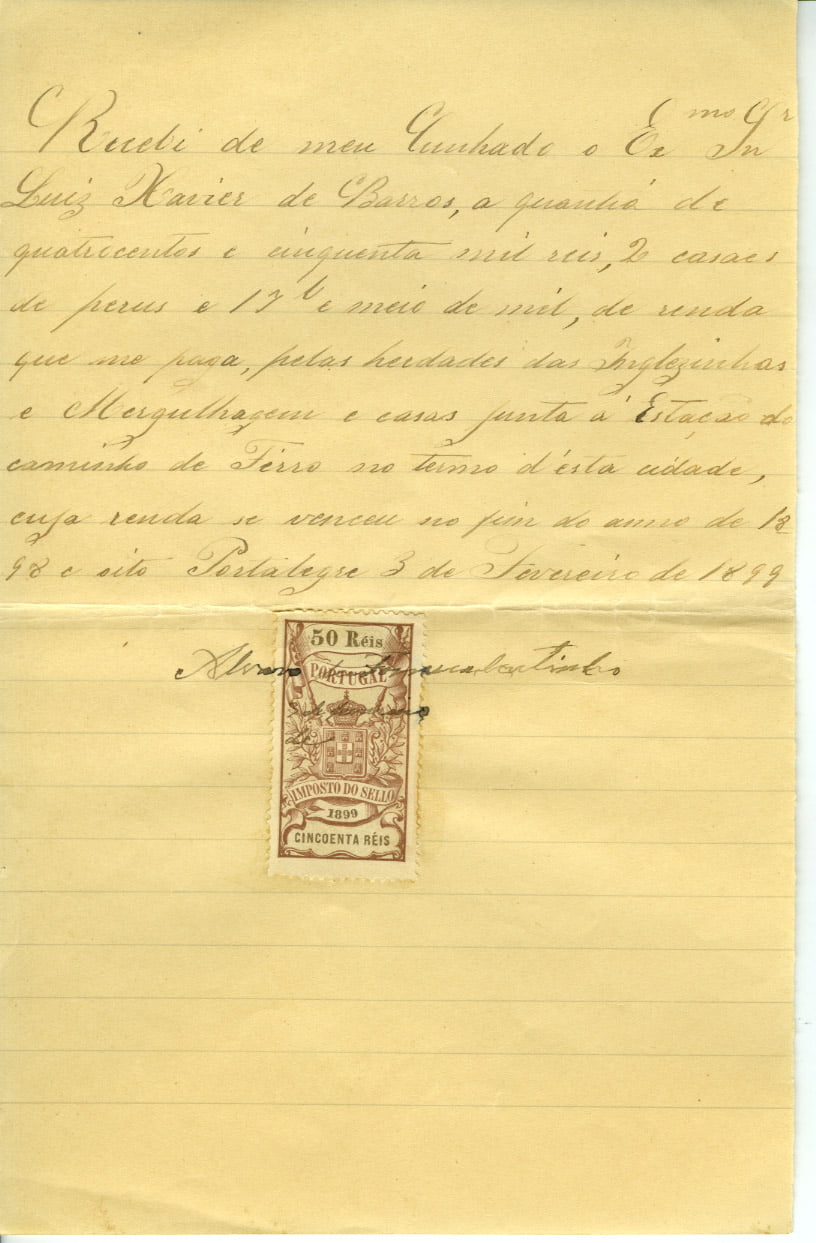 Recebi de meu Cunhado o Ex^mo Sn^r
Luiz Xavier de Barros, a quantiá de
quatrocentos e cinquenta mil reis, 2 casaes
de perus e 17^l e meio de mel, de renda
que me paga, pelas herdades das Inglezinhas
e Mergulhagem e casas junta á Estação do
caminho de Ferro no termo d'esta cidade,
cuja renda se venceu no fim do anno de 18
98 e oito Portalegre 3 de Fevereiro de 1899
50 Réis
Alvaro Coutinho
PORTUGAL
3 de Fevereiro
de
IMPOSTO DO SELLO
1899
CINCOENTA RÉIS